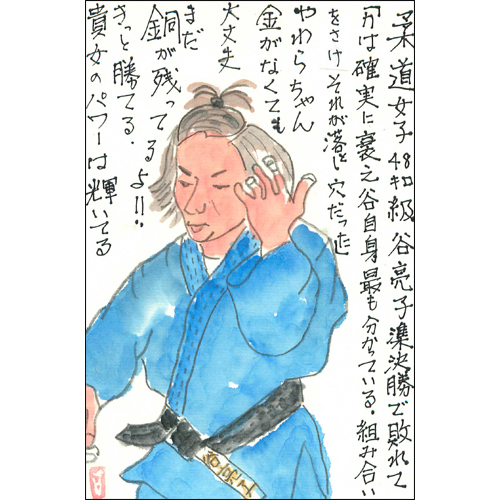 柔道女子48キロ級谷亮子準決勝で敗れて
「力は確実に衰え谷自身最も分かっている.組み合い
をさけそれが落とし穴だった」
やわらちゃん
金がなくても
大丈夫
まだ
銅が残ってるよ!!
きっと勝てる.
貴女のパワーは輝いてる